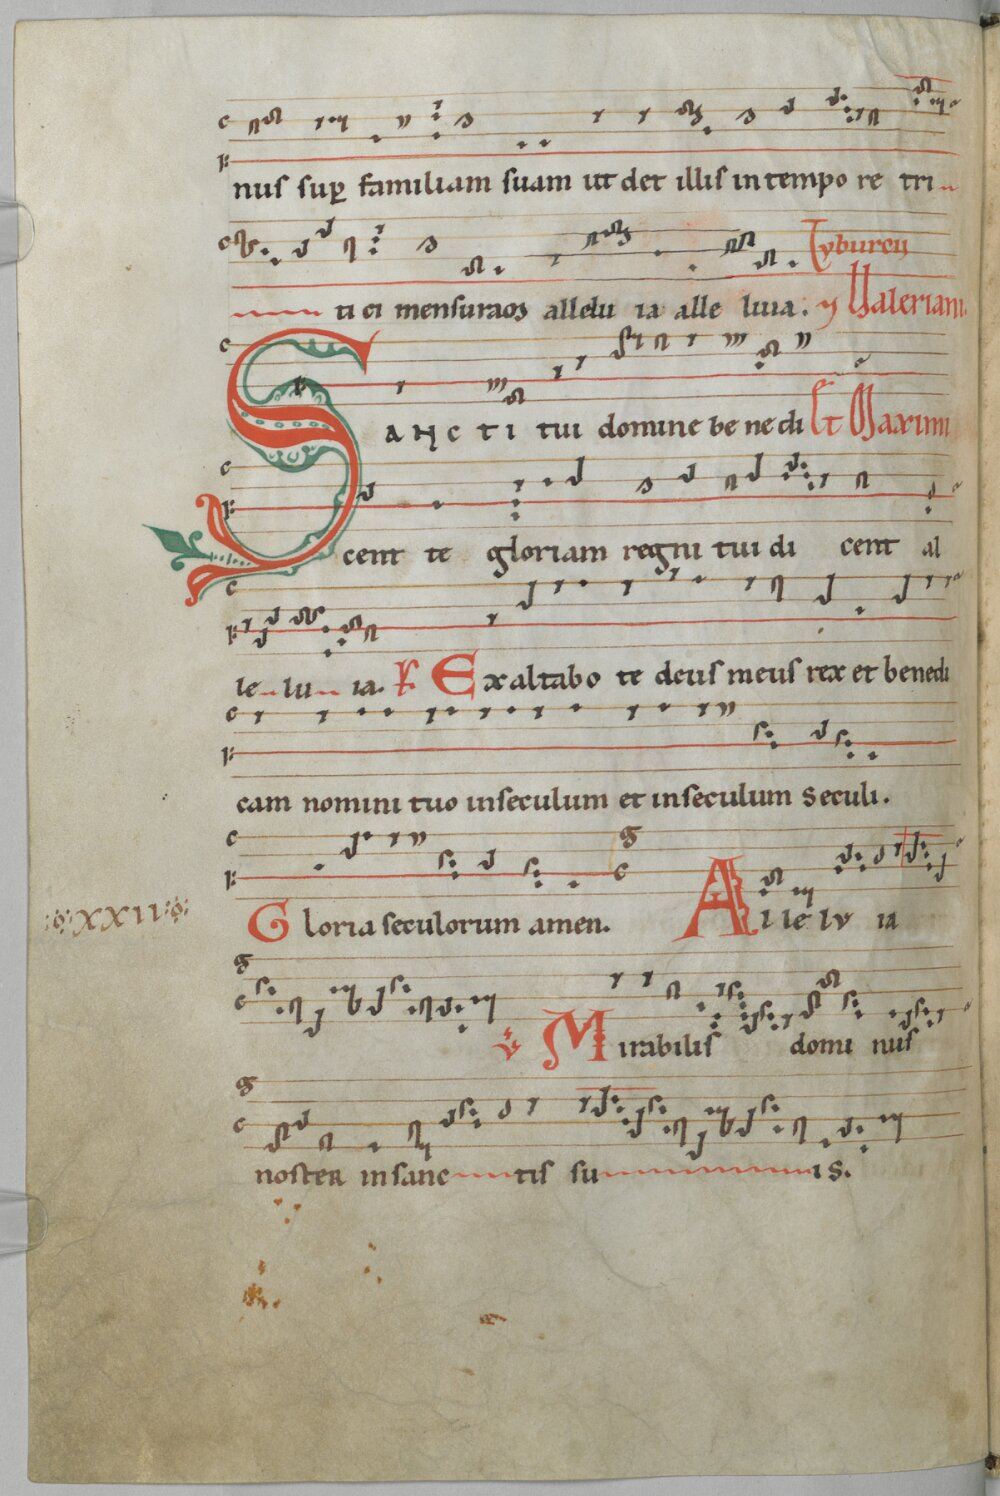 nus sup familiam suam ut det illis in tempo re tri
Tyburcij
ti ci mensuram allelu ia alle luia. Valeriani.
Sancti tui domine be ne di Et Maximi
cent te gloriam regni tui di cent al
le lu ia. Ps Exaltabo te deus meus rex et benedi
cam nomini tuo in seculum et in seculum seculi.
Gloria seculorum amen. Al le lv ia
XXII
V Mirabilis domi nus
noster in sanc tis su is.